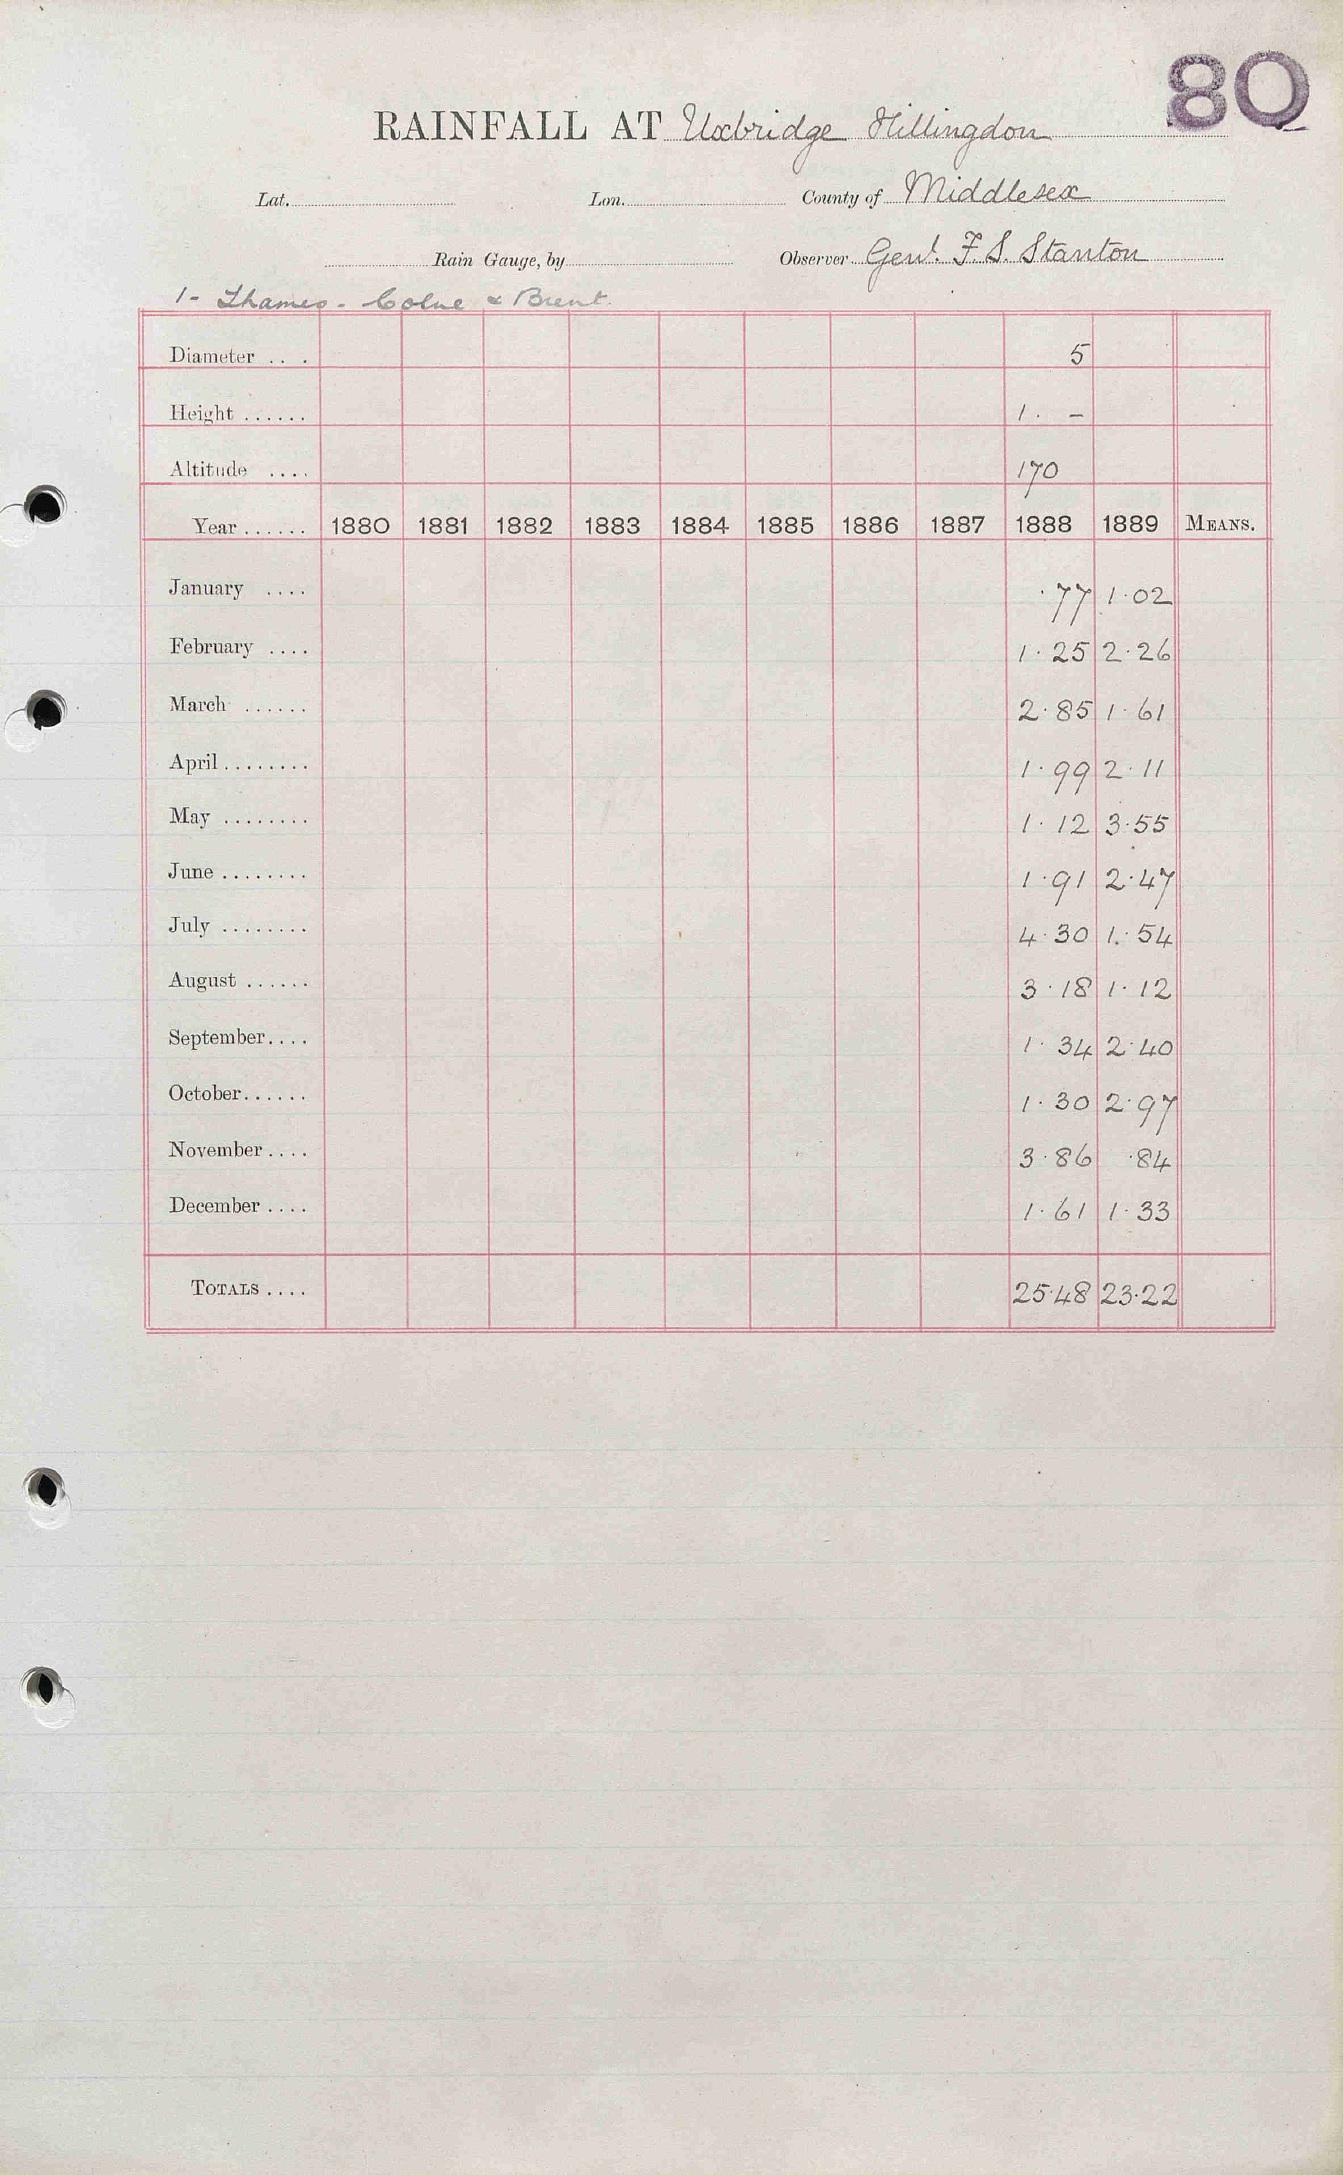 80
RAINFALL AT Uxbridge Hillingdon
Lat. Lon. County of Middlesex
Rain Gauge, by Observer Genl. F. S. Stanton
1 - Thames - Colne & Brent.
Diameter ... 5
Height ...... 1. -
Altitude .... 170
Year ...... 1880 1881 1882 1883 1884 1885 1886 1887 1888 1889 MEANS.
January .... ·77 1·02
February .... 1·25 2·26
March ...... 2·85 1·61
April ........ 1·99 2·11
May ........ 1·12 3·55
June ........ 1·91 2·47
July ........ 4·30 1·54
August ...... 3·18 1·12
September.... 1·34 2·40
October...... 1·30 2·97
November .... 3·86 ·84
December .... 1·61 1·33
TOTALS .... 25·48 23·22